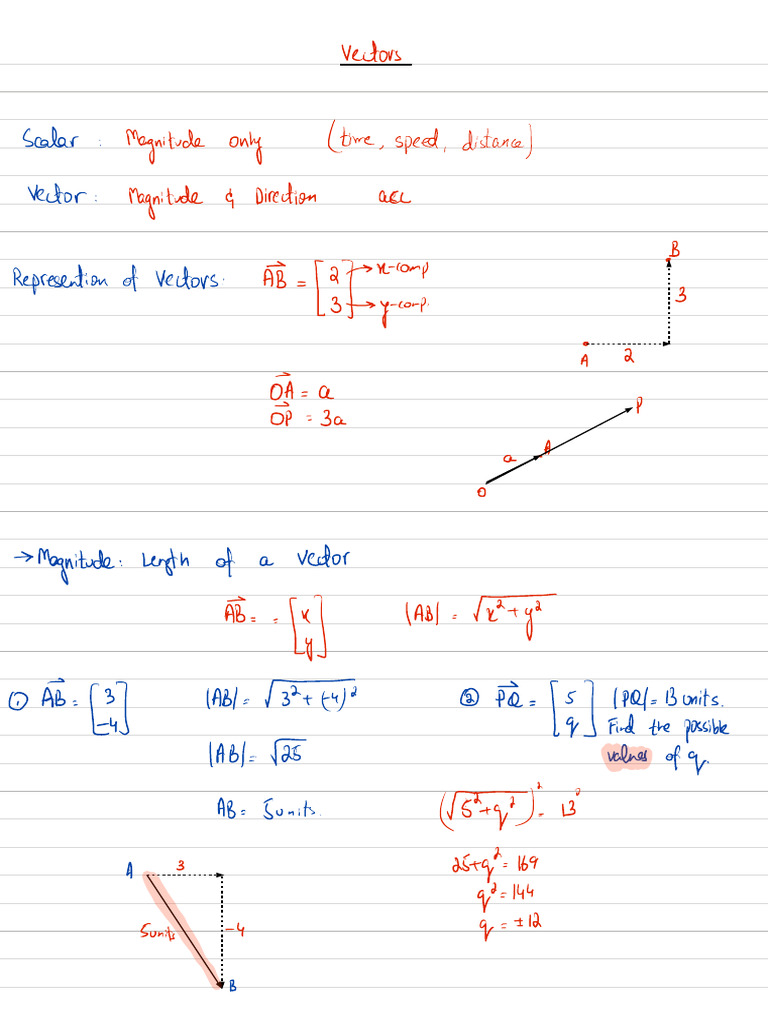 Vectors
Scalar : Magnitude only (time, speed, distance)
Vector : Magnitude & Direction acc
Represention of Vectors: AB→ = [2 3] → x-comp → y-comp.
B
3
A 2
OA→ = a
OP→ = 3a
P
a A
O
→ Magnitude: Length of a vector
AB→ = = [x y] |AB| = √(x² + y²)
① AB→ = [3 -4] |AB| = √(3² + (-4)²)
|AB| = √25
AB = 5units.
② PQ→ = [5 q] |PQ| = 13 units.
Find the possible
values of q.
(√(5² + q²))² = 13²
25+q² = 169
q² = 144
q = ±12
A 3
5units -4
B